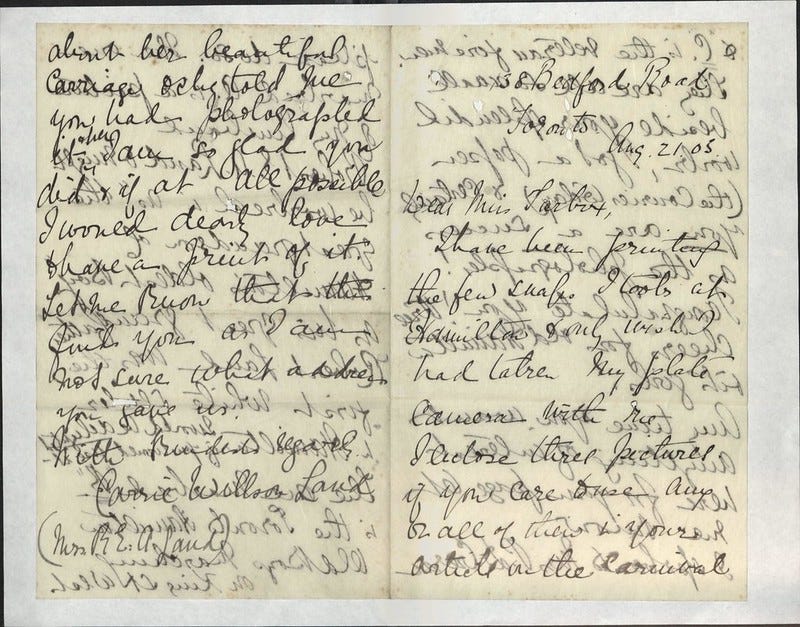 about her beautiful
carriage & she told me
you had photographed
it. I am so glad you
did & if at all possible
I would dearly love
to have a print of it.
Let me know that this
finds you as I am
not sure what address
you gave us.
With kindest regards
Carrie Willson Land
(Mrs R. E. A. Land)
38 Bedford Road
Toronto
Aug. 21. 03
Dear Miss Tarbox,
I have been printing
the few snaps I took at
Hamilton & only wish I
had taken my plate
camera with me
I enclose three pictures
if you care to use any
or all of them in your
article on the Carnival